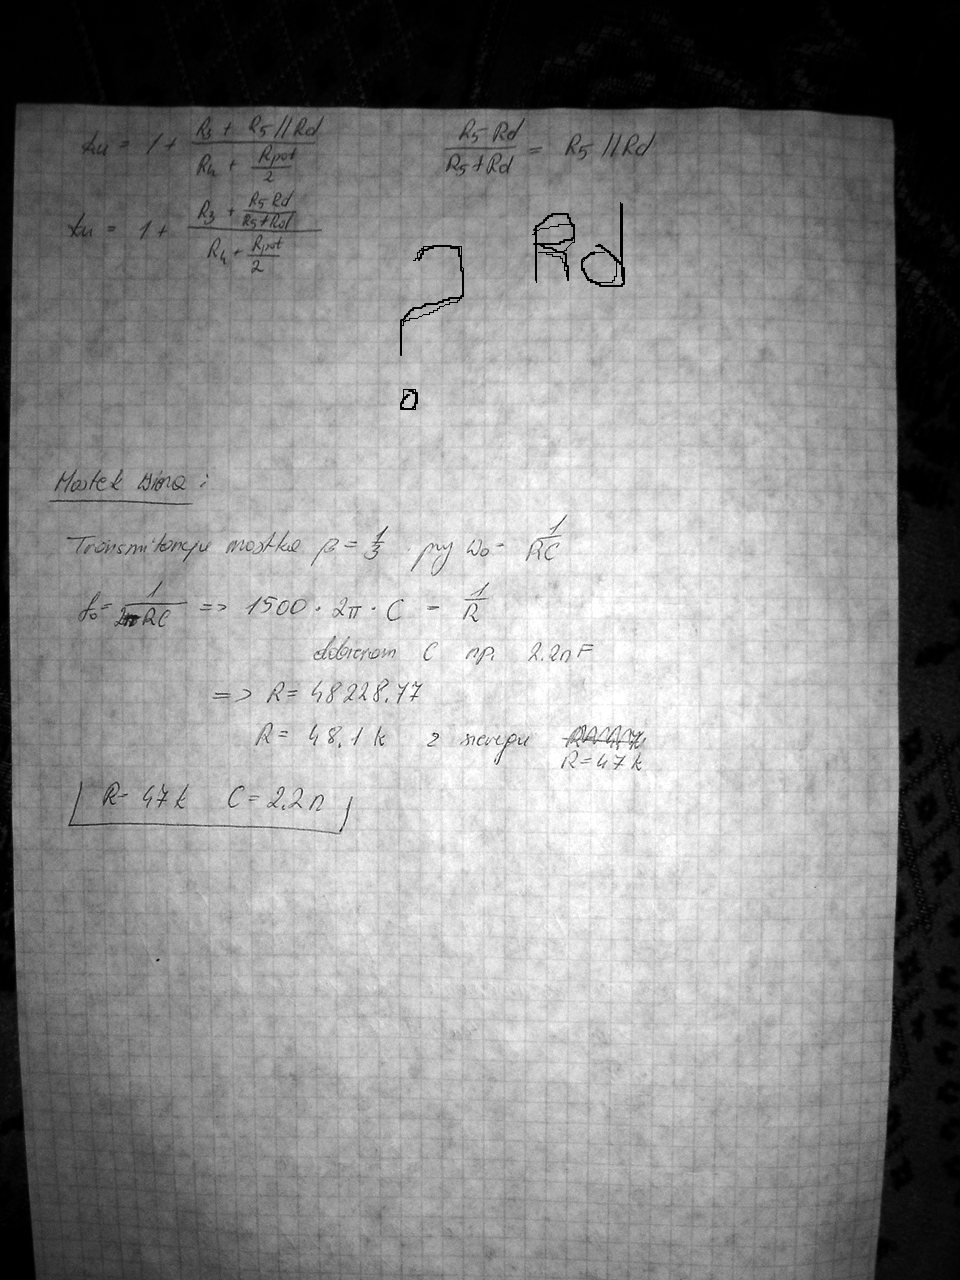 ku = 1 + (R3 + R5 // Rd) / (R4 + Rpot/2)
(R5 · Rd) / (R5 + Rd) = R5 // Rd
ku = 1 + (R3 + (R5 · Rd)/(R5 + Rd)) / (R4 + Rpot/2)
? Rd
Mostek Wiena :
Transmitancja mostka β = 1/3 przy ω0 = 1/RC
f0 = 1/(2π RC) => 1500 · 2π · C = 1/R
dobieram C np. 2.2nF
=> R = 48228,77
R = 48,1 k z szeregu
R = 47k
R = 47k C = 2.2n